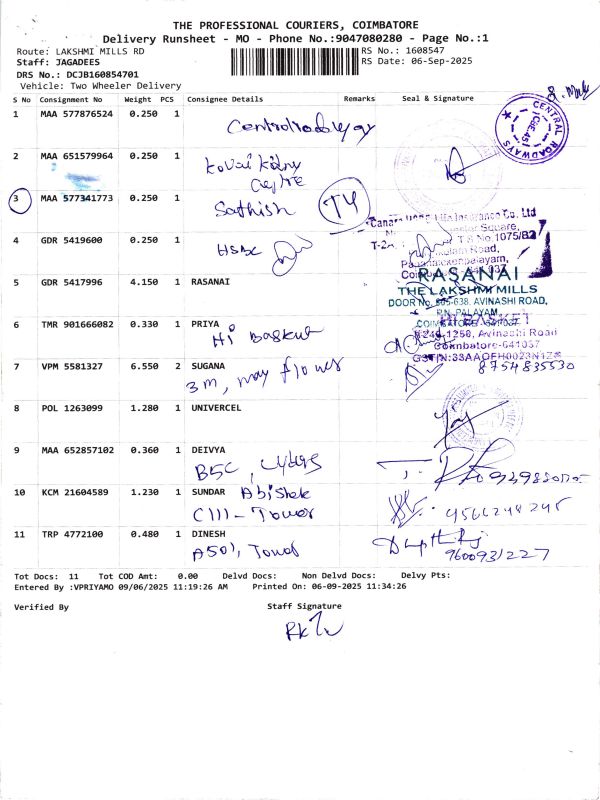 THE PROFESSIONAL COURIERS, COIMBATORE
Delivery Runsheet - MO - Phone No.:9047080280 - Page No.:1
Route: LAKSHMI MILLS RD
RS No.: 1608547
Staff: JAGADEES
RS Date: 06-Sep-2025
DRS No.: DCJB160854701
Vehicle: Two Wheeler Delivery
S No Consignment No Weight PCS Consignee Details Remarks Seal & Signature
CENTRAL ROADWAYS
1 MAA 577876524 0.250 1
2 MAA 651579964 0.250 1
Kovai Kidney
Centre
3 MAA 577341773 0.250 1 Sathish
T4
Canara HSBC Life Insurance Co. Ltd
4 GDR 5419600 0.250 1 HSBC
T.S No.1075/B2
5 GDR 5417996 4.150 1 RASANAI
RASANAI
THE LAKSHMI MILLS
DOOR No. 605-638, AVINASHI ROAD,
P.N. PALAYAM,
COIMBATORE - 641037
6 TMR 901666082 0.330 1 PRIYA
Avinashi Road
Coimbatore-641037
7 VPM 5581327 6.550 2 SUGANA
3M, may flower
8754835530
8 POL 1263099 1.280 1 UNIVERCEL
9 MAA 652857102 0.360 1 DEIVYA
B5C,
10 KCM 21604589 1.230 1 SUNDAR Abishek
C111 - Tower
4566244245
11 TRP 4772100 0.480 1 DINESH
A501, Tower
9600931227
Tot Docs: 11 Tot COD Amt: 0.00 Delvd Docs: Non Delvd Docs: Delvy Pts:
Entered By :VPRIYAMO 09/06/2025 11:19:26 AM Printed On: 06-09-2025 11:34:26
Verified By Staff Signature